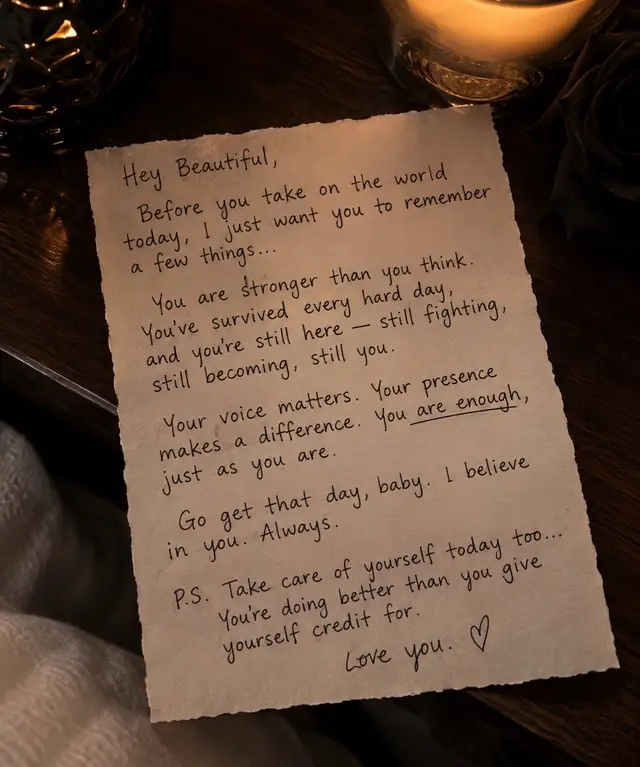 Hey Beautiful,
Before you take on the world
today, I just want you to remember
a few things...
You are stronger than you think.
You've survived every hard day,
and you're still here — still fighting,
still becoming, still you.
Your voice matters. Your presence
makes a difference. You are enough,
just as you are.
Go get that day, baby. I believe
in you. Always.
P.S. Take care of yourself today too...
You're doing better than you give
yourself credit for.
Love you. ♡